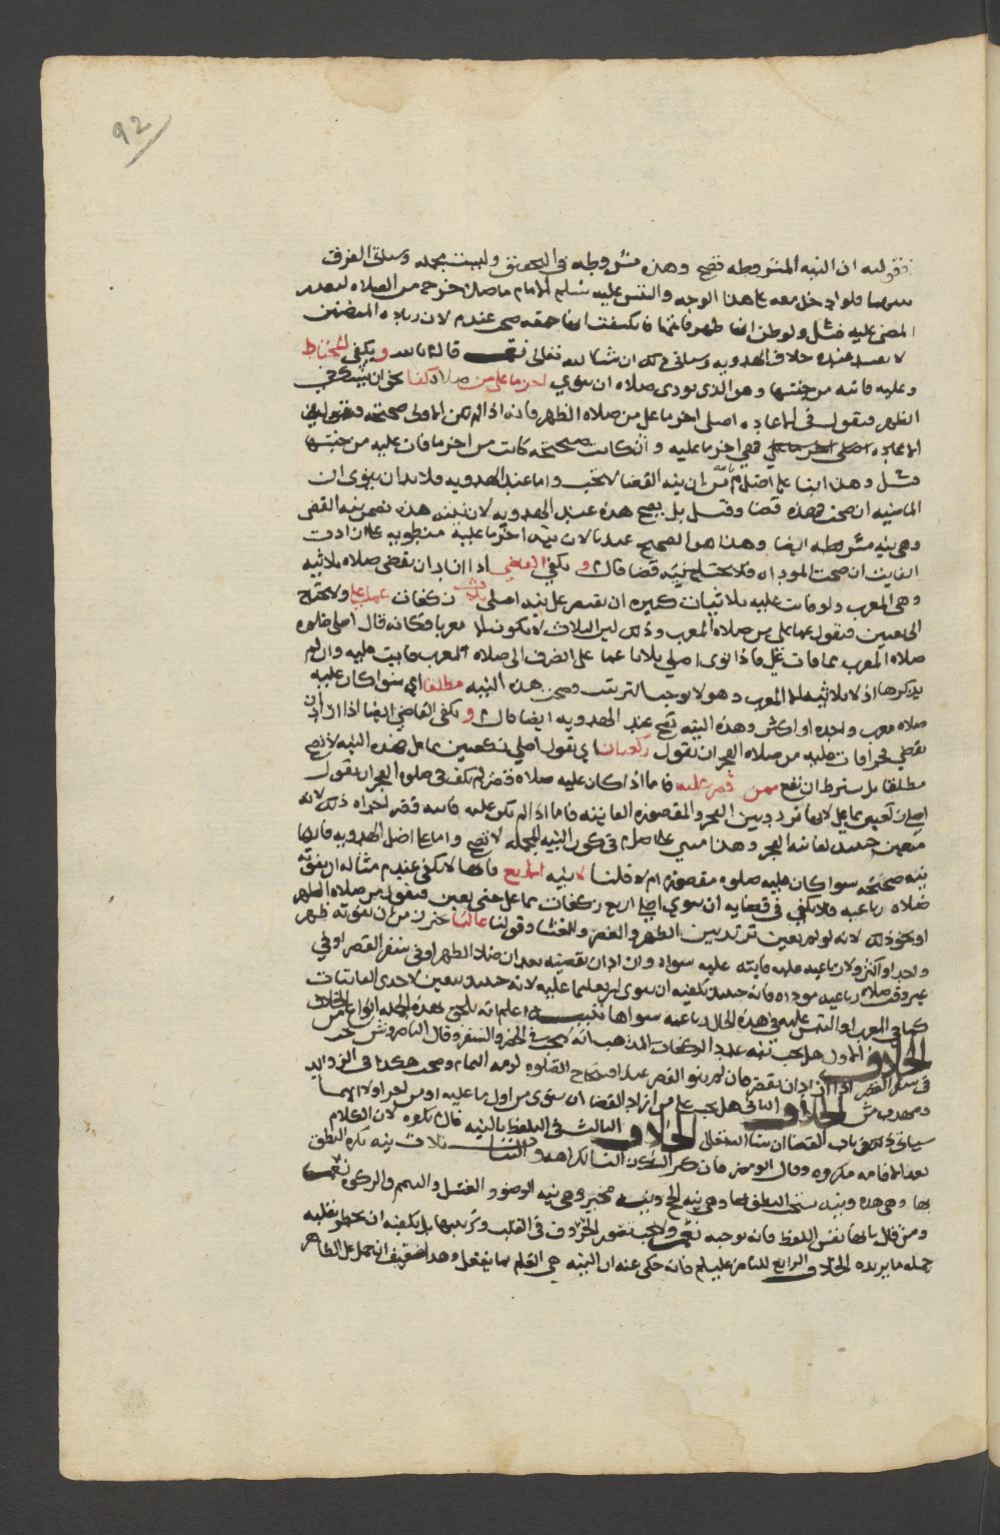 92
فقولنه ان النيه المشروطه تصح وهذه مشروطه في التحقيق وليست بجمله وسياتي الفرق
بينهما فلو ادخل معه على هذا الوجه والتبس عليه تسليم الامام ما صلا خرج من الصلاه لتعذر
المضي عليه مثل ولو ظن انها ظهر فانها فانكشفت انها جمعه صح عندهم لان زياده
لا تفسد عنده خلاف الهدويه وسياتي ذلك ان شا الله تعالى قال مالله ويكفي المحتاط
وعليه فائته من جنسها وهو الذي يودي صلاه ان ينوي اخر ما علي من صلاه كذا نحو ان يشك في
الظهر فيقول في الاعاده اصلي اخر ما علي من صلاه الظهر فانه اذا لم تكن الاولى صحيحه
الاعاده فهي اخر ما عليه وان كانت صحيحه كانت من اخر ما فات عليه من جنسها
مثل وهذا ابنا على اصل م بالله ان نيه القضا لا تجب واما عند الهدويه فلا بد ان ينوي ان
الماضيه ان صحت فهذه قضا وقيل بل يصح هذه عند الهدويه لان نيته هذه تضمن نيه القضى
وهي نيه مشروطه ايضا وهذا هو الصحيح عندنا لان نيته اخر ما عليه منطويه على ان ادت
الفايت ان صحت الموداه فلا يحتاج نيه قضا قال م ويكفي القاضي اذا اراد ان يقضي صلاه ثلاثيه
وهي المغرب ولو فاتت عليه ثلاثيات كثيره ان يقتصر على نيه اصلي ثلاث ركعات عما علي ولا يحتاج
الى تعيين فيقول عما علي من صلاه المغرب وذلك لان الثلاث لا يكون الا مغربا فكانه قال اصلي صلوه
صلاه المغرب مما فات علي فاذا نوى اصلي ثلاثا عما علي انصرف الى صلاه المغرب فايت عليه وان لم
يذكرها اذ لا ثلاثيه الا المغرب وهو لا يوجب الترتيب وتصح هذه النيه مطلقا اي سوا كان عليه
صلاه مغرب واحده او اكثر وهذه النيه تصح عند الهدويه ايضا قال م ويكفي القاضي ايضا اذا اراد ان
يقضي فجرا فات عليه من صلاه الفجر ان يقول ركعتان اي يقول اصلي ركعتين عما علي هذه النيه لا تصح
مطلقا بل بشرط ان تقع ممن لا قصر عليه فاما اذا كان عليه صلاه قصر لم يكف في صلوه الفجر ان يقول
اصلي ركعتين عما علي لانها تردد بين الفجر والمقصوره الفايته فاما اذا لم تكن عليه فايته قصر اجزاه ذلك لانه
متعين حينئذ لفائته الفجر وهذا مبني على اصل م في كون النيه المجمله لا تصح واما على اصل الهدويه فانها
نيه صحيحه سوا كان عليه صلوه مقصوره ام لا وقلنا لا نيه الاربع فانها لا تكفي عندهم مثاله ان يفوته
صلاه رباعيه فلا يكفي في قضايه ان ينوي اصلي اربع ركعات عما علي حتى يعين فيقول من صلاه الظهر
او نحو ذلك لانه لو لم يعين تردد بين الظهر والعصر والعشا وقولنا غالبا احترز من ان تفوته ظهر
واحده او اكثر ولا رباعيه عليه فايته عليه سواه وان اراد ان يقضيه بعد ان صلا الظهر او في سفر القصر او في
غير وقت صلاه رباعيه موداه فانه حينئذ يكفيه ان ينوي اربعا عما عليه لانه حينئذ يتعين لاحدى الفائتات
كما في المغرب او التبس عليه في هذه الحال رباعيه سواها تنبيه واعلم انه يلحق بهذه الجمله انواع من الخلاف
الخلاف الاول هل يجب نيه عدد الركعات المذهب انه لا يجب في الحضر والسفر وقال الناصر وش تجب
في سفر القصر اذا اراد ان يقصر فان لم ينو القصر عند افتتاح الصلوه لزمه التمام وتصح هكذا في الزوايد
ومهذب ش الخلاف الثاني هل يجب على من اراد القضا ان ينوي من اول ما عليه او من اخر او لا
سياتي ذلك في باب القضا ان شا الله تعالى الخلاف الثالث في التلفظ بالنيه قال م يكره لان الكلام
بعد الاقامه مكروه وقال ابو مضر النيات ثلاث نيه يكره النطق
بها وهي هذه ونيه يستحب التلفظ بها وهي نيه الحج ونيه مخير وهي نيه الوضوء والغسل والتيمم والزكوه
ومن قال بانها نفس اللفظ فانه يوجبه نعم ولا يجب تصور الحروف في القلب وترتيبها بل يكفيه ان يخطر بقلبه
جمله ما يريده الخلاف الرابع للناصر عليلم فانه حكى عنه ان النيه هي العلم بما يفعل وهذا ضعيف ان حمل على الظاهر